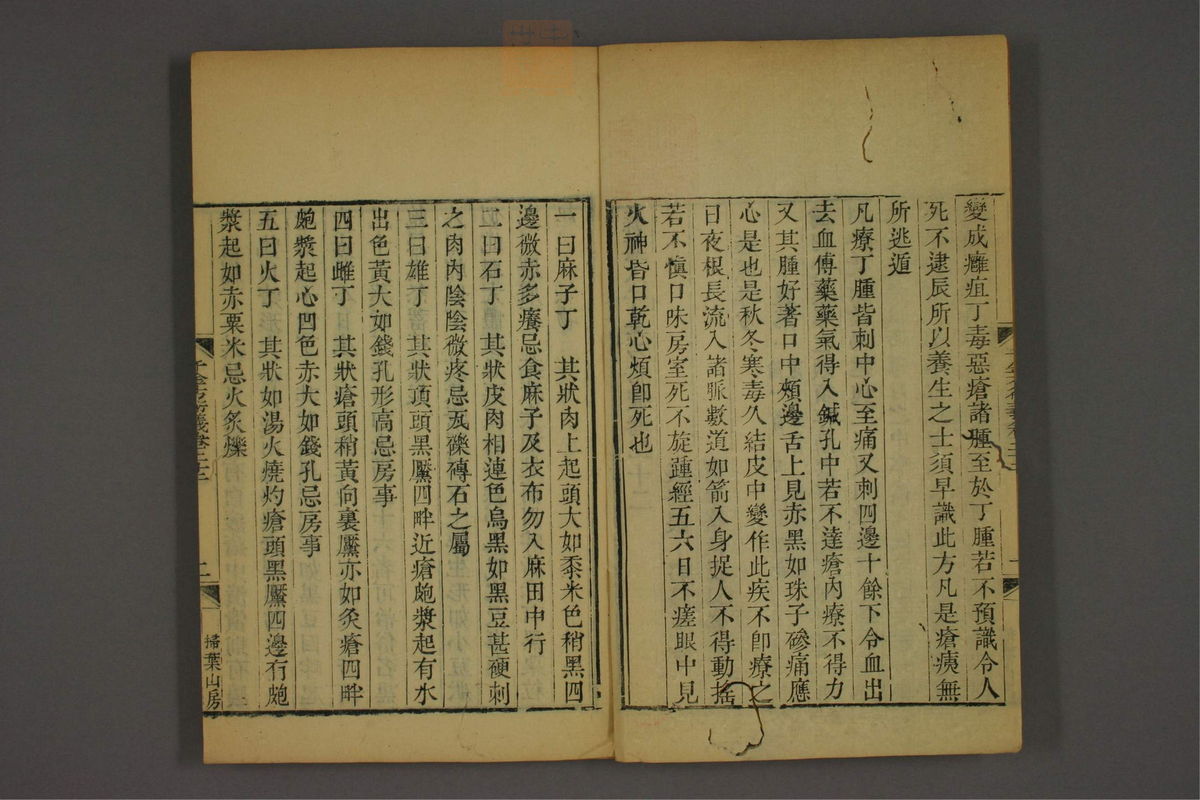 變成癰疽丁毒惡瘡諸腫至於丁腫若不預識令人
死不逮辰所以養生之士須早識此方凡是瘡痍無
所逃遁
凡療丁腫皆刺中心至痛又刺四邊十餘下令血出
去血傅藥藥氣得入鍼孔中若不達瘡內療不得力
又其腫好著口中頰邊舌上見赤黑如珠子磣痛應
心是也是秋冬寒毒久結皮中變作此疾不卽療之
日夜根長流入諸脈數道如箭入身捉人不得動搖
若不愼口味房室死不旋踵經五六日不瘥眼中見
火神昏口乾心煩卽死也
一曰麻子丁 其狀肉上起頭大如黍米色稍黑四
邊微赤多癢忌食麻子及衣布勿入麻田中行
二曰石丁 其狀皮肉相連色烏黑如黑豆甚硬刺
之肉內陰陰微疼忌瓦礫磚石之屬
三曰雄丁 其狀頂頭黑黶四畔近瘡皰漿起有水
出色黃大如錢孔形高忌房事
四曰雌丁 其狀瘡頭稍黃向裏黶亦如灸瘡四畔
皰漿起心凹色赤大如錢孔忌房事
五曰火丁 其狀如湯火燒灼瘡頭黑黶四邊有皰
漿起如赤粟米忌火炙爍
千金方衍義卷二十二
二
掃葉山房